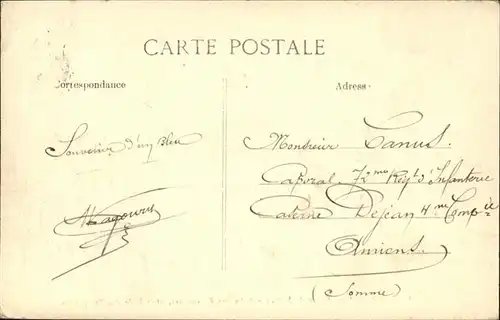 CARTE POSTALE
Correspondance
Adresse
Souvenir d'un Bleu
Monsieur Canus.
Caporal 72me Regt d'Infanterie
Caserne Dejean 4me Compie
Amiens.
(Somme)